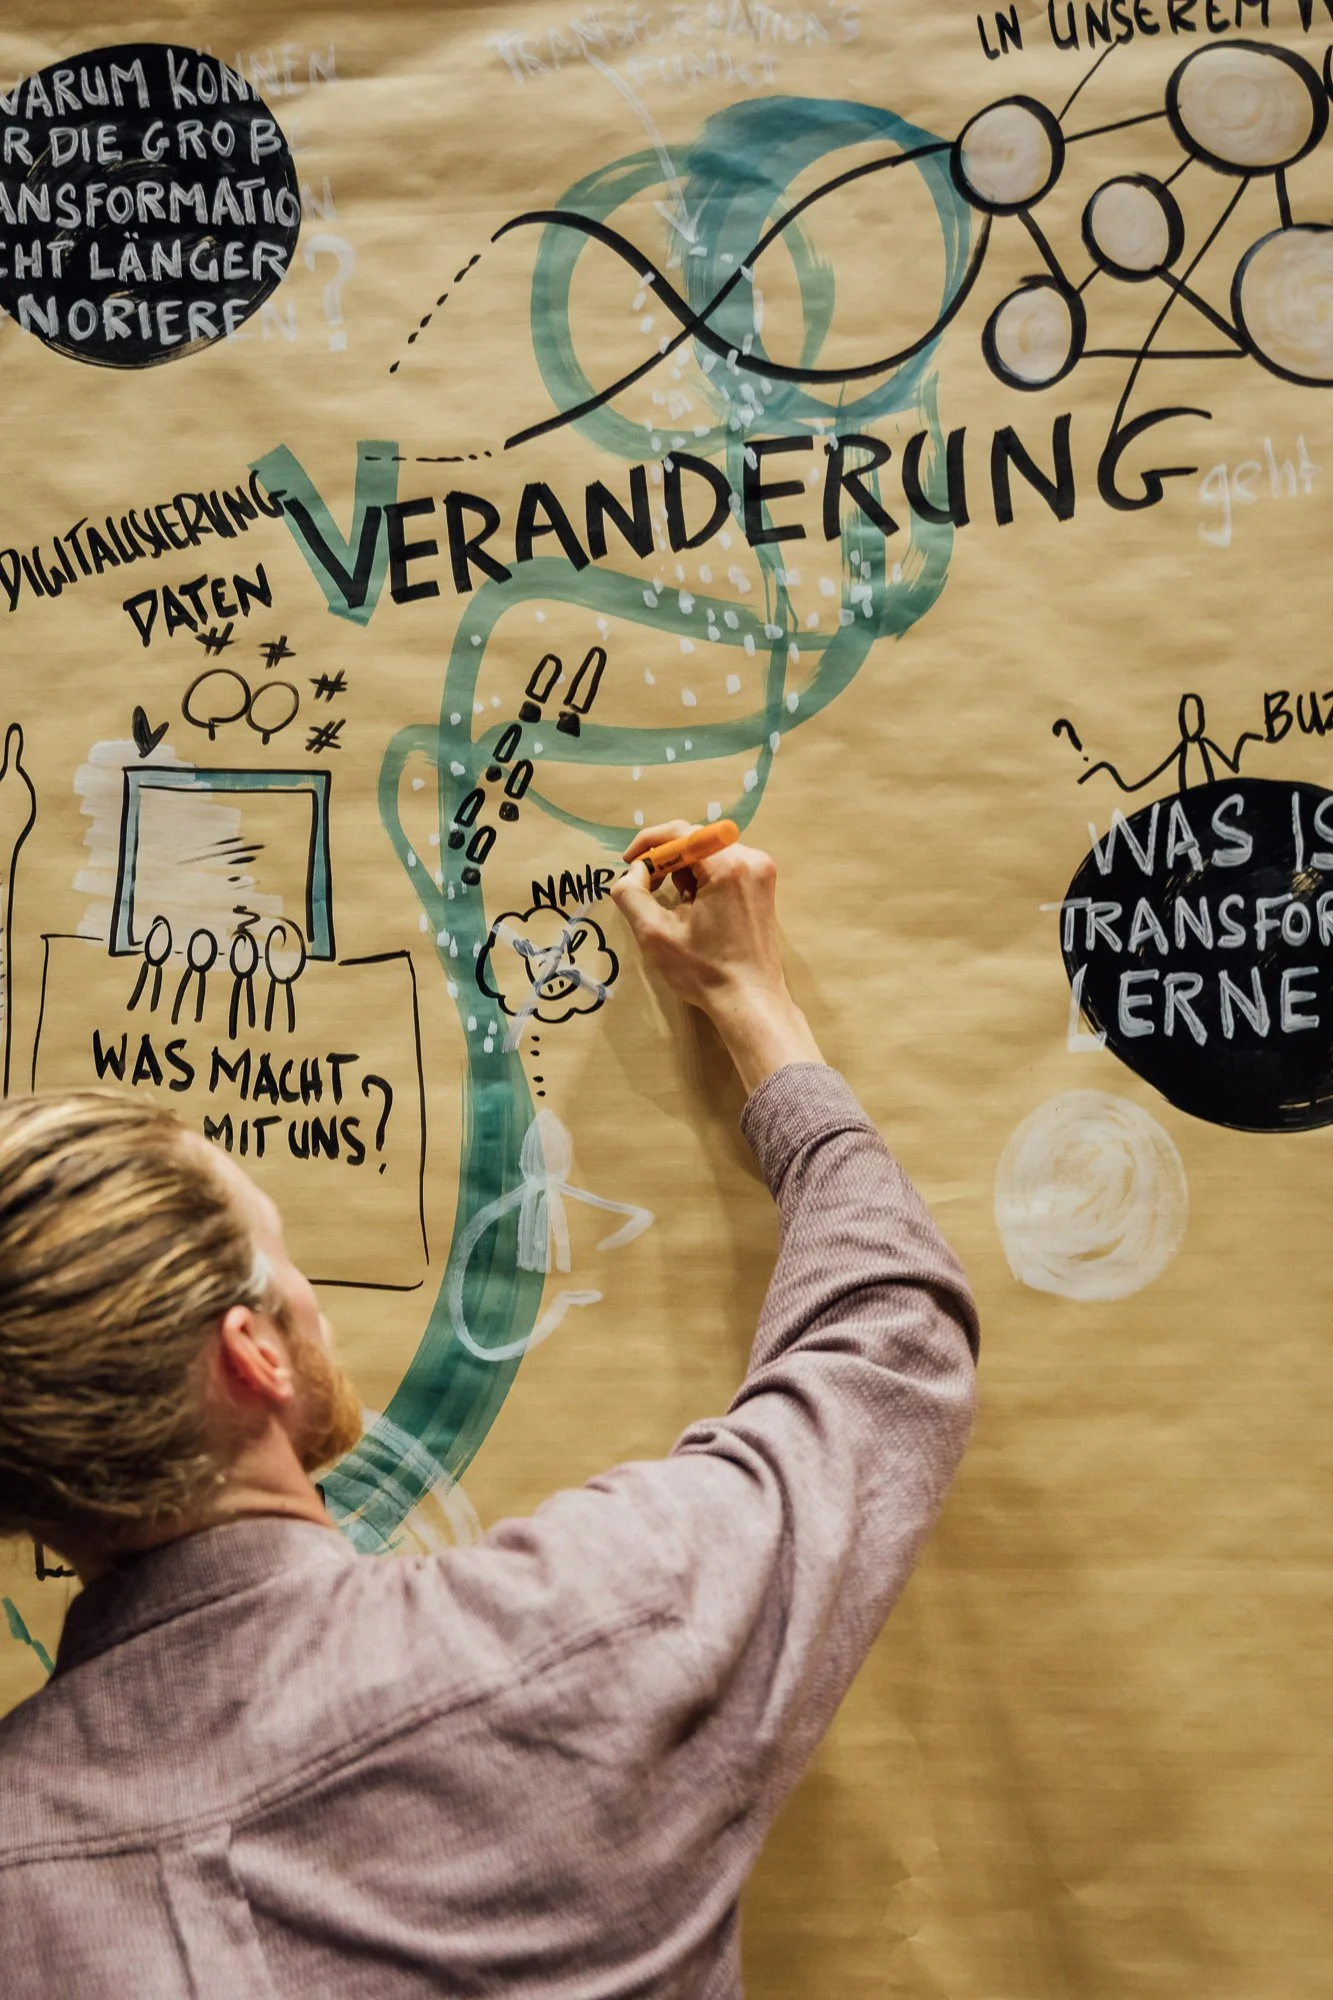 WARUM KÖNNEN
R DIE GROẞE
ANSFORMATION
CHT LÄNGER
NORIEREN?
TRANSFORMATION'S
PUNKT
IN UNSEREM
VERANDERUNG geht
DIGITALISIERUNG
DATEN
# # # #
NAHR
WAS MACHT
MIT UNS?
? BUZ
WAS IS
TRANSFOR
LERNE